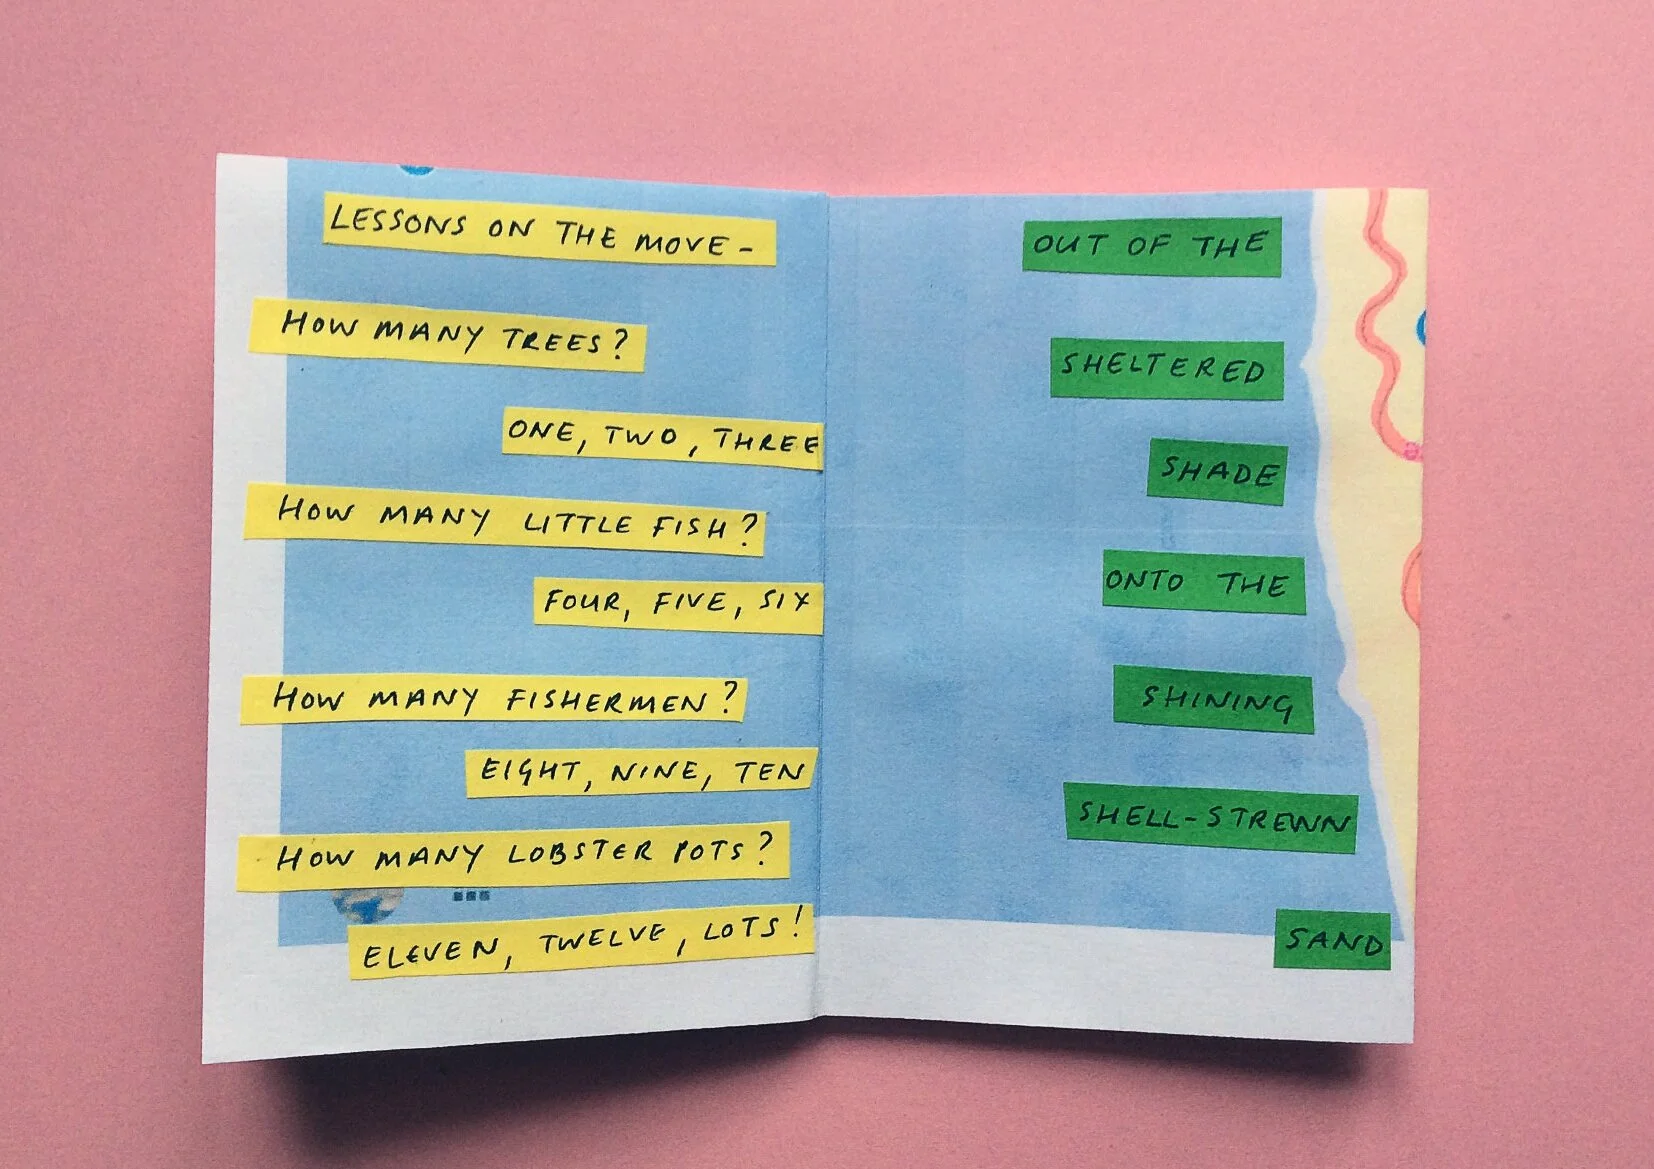 LESSONS ON THE MOVE -
HOW MANY TREES?
ONE, TWO, THREE
HOW MANY LITTLE FISH?
FOUR, FIVE, SIX
HOW MANY FISHERMEN?
EIGHT, NINE, TEN
HOW MANY LOBSTER POTS?
ELEVEN, TWELVE, LOTS!
OUT OF THE
SHELTERED
SHADE
ONTO THE
SHINING
SHELL-STREWN
SAND